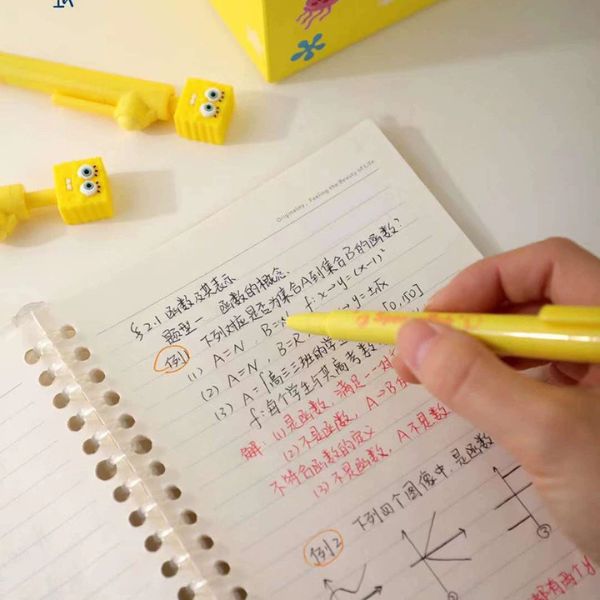 Originality, Feeling the Beauty of Life
§2.1 函数及其表示
题型一 函数的概念
例1 下列对应是否为集合A到集合B的函数?
(1) A=N, B= f:x→y=(x-1)²
(2) A=N, B=R, →y=±√x
(3) A={高三三班的学 [0,150]
f:每个学生与其高考数
解: (1)是函数,满足一对
(2)不是函数, A→B
不符合函数的定义
(3)不是函数, A不是数
例2 下列四个图像中,是函数
①
③
都有两个y